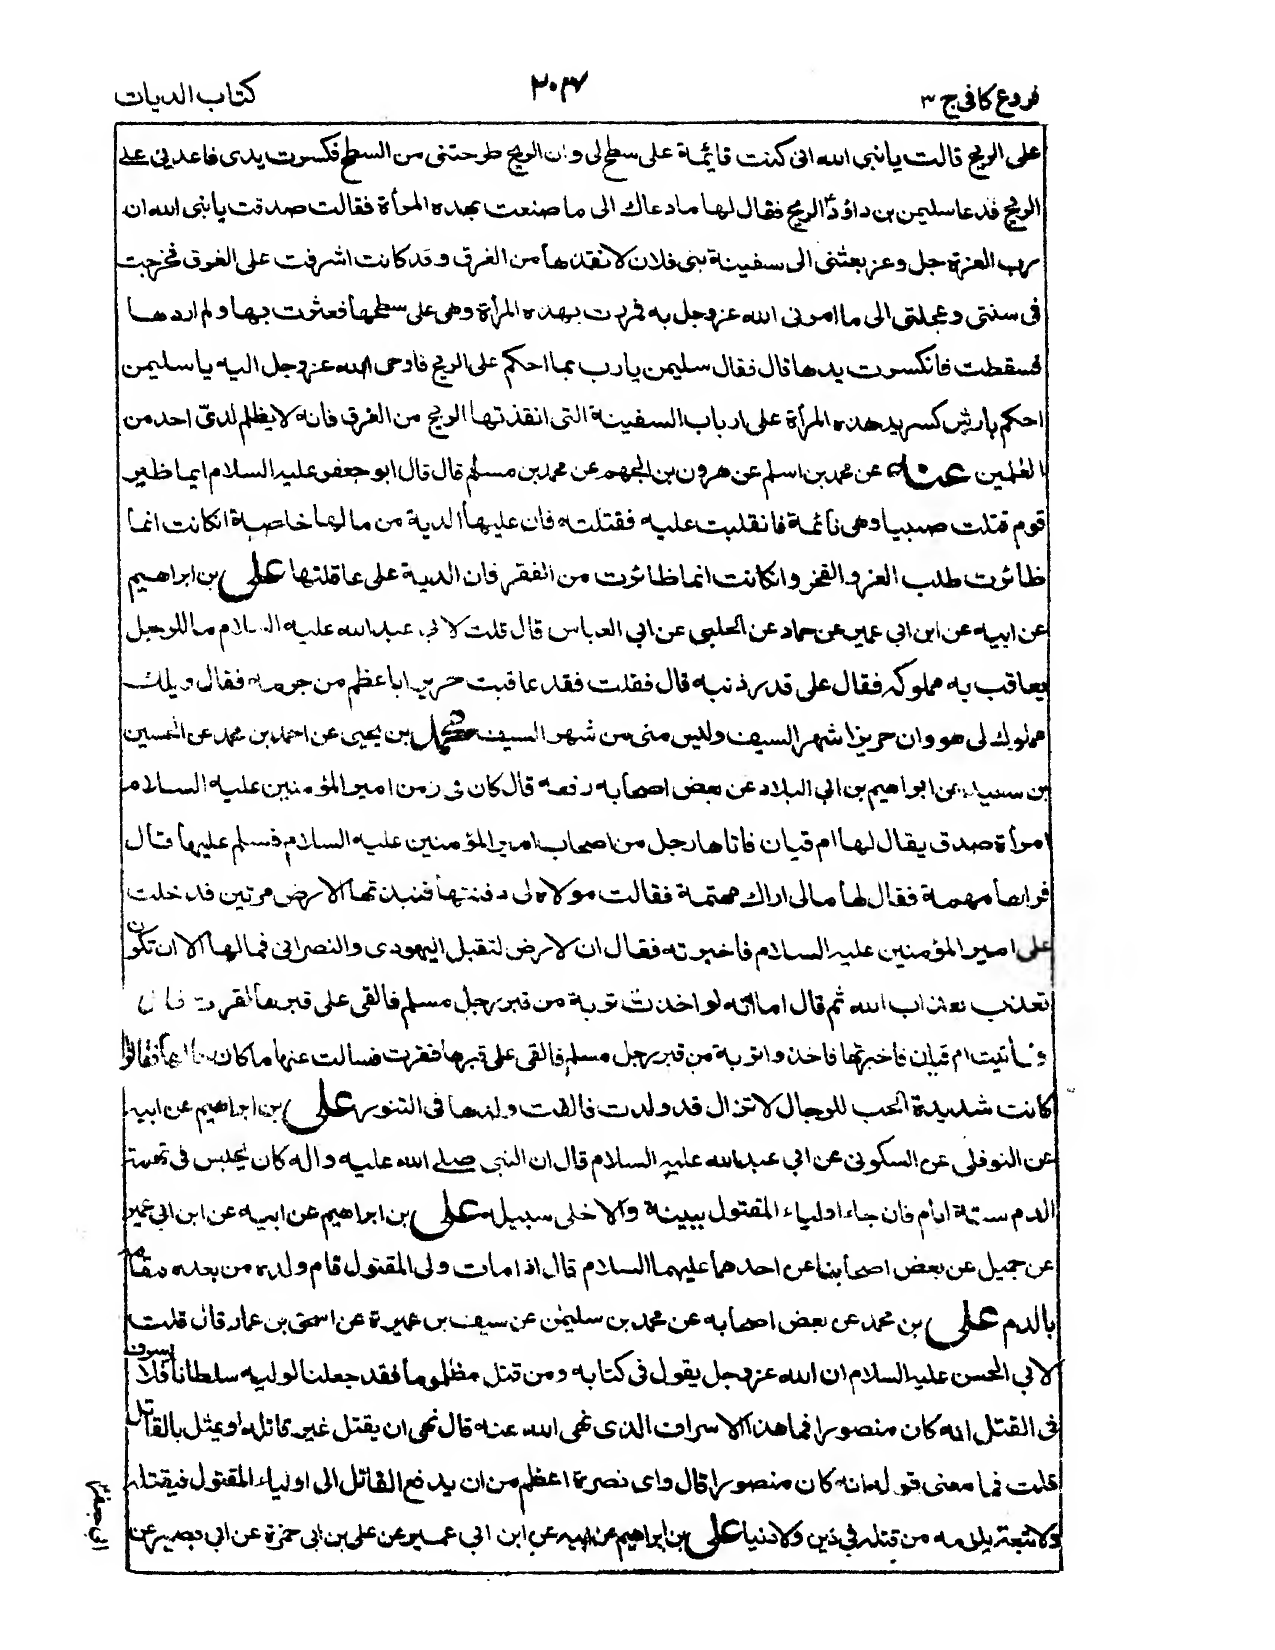 فروع كافى ج ٣
٣٠٤
كتاب الديات
على الريح قالت يا نبى الله انى كنت قايمة على سطح لى وان الريح طرحتنى من السطح فكسرت يدى فاعدنى على
الريح فدعا سليمن بن داؤد الريح فقال لها ما دعاك الى ما صنعت بهذه المرأة فقالت صدقت يا نبى الله ان
رب العزة جل وعز بعثنى الى سفينة بنى فلان لانقذها من الغرق وقد كانت اشرفت على الغرق فخرجت
فى سنتى وعجلتى الى ما امرنى الله عز وجل به فمررت بهذه المرأة وهى على سطحها فعثرت بها ولم اردها
فسقطت فانكسرت يدها قال فقال سليمن يا رب بما احكم على الريح فاوحى الله عز وجل اليه يا سليمن
احكم بارش كسر يد هذه المرأة على ارباب السفينة التى انقذتها الريح من الغرق فانه لا يظلم لدىّ احد من
العلمين عنه عن محمد بن اسلم عن هرون بن الجهم عن محمد بن مسلم قال قال ابو جعفر عليه السلام ايما ظير
قوم قتلت صبيا وهى نائمة فانقلبت عليه فقتلته فان عليها الدية من مالها خاصة انكانت انما
ظائرت طلب العز والفخر وانكانت انما ظائرت من الفقر فان الدية على عاقلتها على بن ابراهيم
عن ابيه عن ابن ابى عمير عن حماد عن الحلبى عن ابى العباس قال قلت لابى عبد الله عليه السلام ما للرجل
يعاقب به مملوكه فقال على قدر ذنبه قال فقلت فقد عاقبت حريزا باعظم من جرمه فقال ويلك
مملوك لى هو وان حريزا شهر السيف وليس منى من شهر السيف محمد بن يحيى عن احمد بن محمد عن الحسين
بن سعيد عن ابراهيم بن ابى البلاد عن بعض اصحابه رفعه قال كان فى زمن امير المؤمنين عليه السلام
امرأة صدق يقال لها ام قيان فاتاها رجل من اصحاب امير المؤمنين عليه السلام فسلم عليها قال
فرأها مهمة فقال لها مالى اراك مهتمة فقالت مولاة لى دفنتها فنبذتها الارض مرتين فدخلت
على امير المؤمنين عليه السلام فاخبرته فقال ان الارض لتقبل اليهودى والنصرانى فما لها الا ان تكون
تعذب بعذاب الله ثم قال اما انه لو اخذت تربة من قبر رجل مسلم فالقى على قبرها لقرت قال
فاتيت ام قيان فاخبرتها فاخذوا تربة من قبر رجل مسلم فالقى على قبرها فقرت فسالت عنها ما كان حالها فقالوا
كانت شديدة الحب للرجال لا تزال قد ولدت فالقت ولدها فى التنور على بن ابراهيم عن ابيه
عن النوفلى عن السكونى عن ابى عبد الله عليه السلام قال ان النبى صلى الله عليه واله كان يحبس فى تهمة
الدم ستة ايام فان جاء اولياء المقتول ببينة والا خلى سبيله على بن ابراهيم عن ابيه عن ابن ابى عمير
عن جميل عن بعض اصحابنا عن احدهما عليهما السلام قال اذا مات ولى المقتول قام ولده من بعده مقامه
بالدم على بن محمد عن بعض اصحابه عن محمد بن سليمن عن سيف بن عميرة عن اسحق بن عمار قال قلت
لابى الحسن عليه السلام ان الله عز وجل يقول فى كتابه ومن قتل مظلوما فقد جعلنا لوليه سلطانا فلا يسرف
فى القتل انه كان منصورا فما هذا الاسراف الذى نهى الله عنه قال نهى ان يقتل غير قاتله او يمثل بالقاتل
قلت فما معنى قوله انه كان منصورا قال واى نصرة اعظم من ان يدفع القاتل الى اولياء المقتول فيقتله
ولا تبعة يلزمه من قتله فى دين ولا دنيا على بن ابراهيم عن ابيه عن ابن ابى عمير عن على بن ابى حمزة عن ابى بصير عن
ابى جعفر